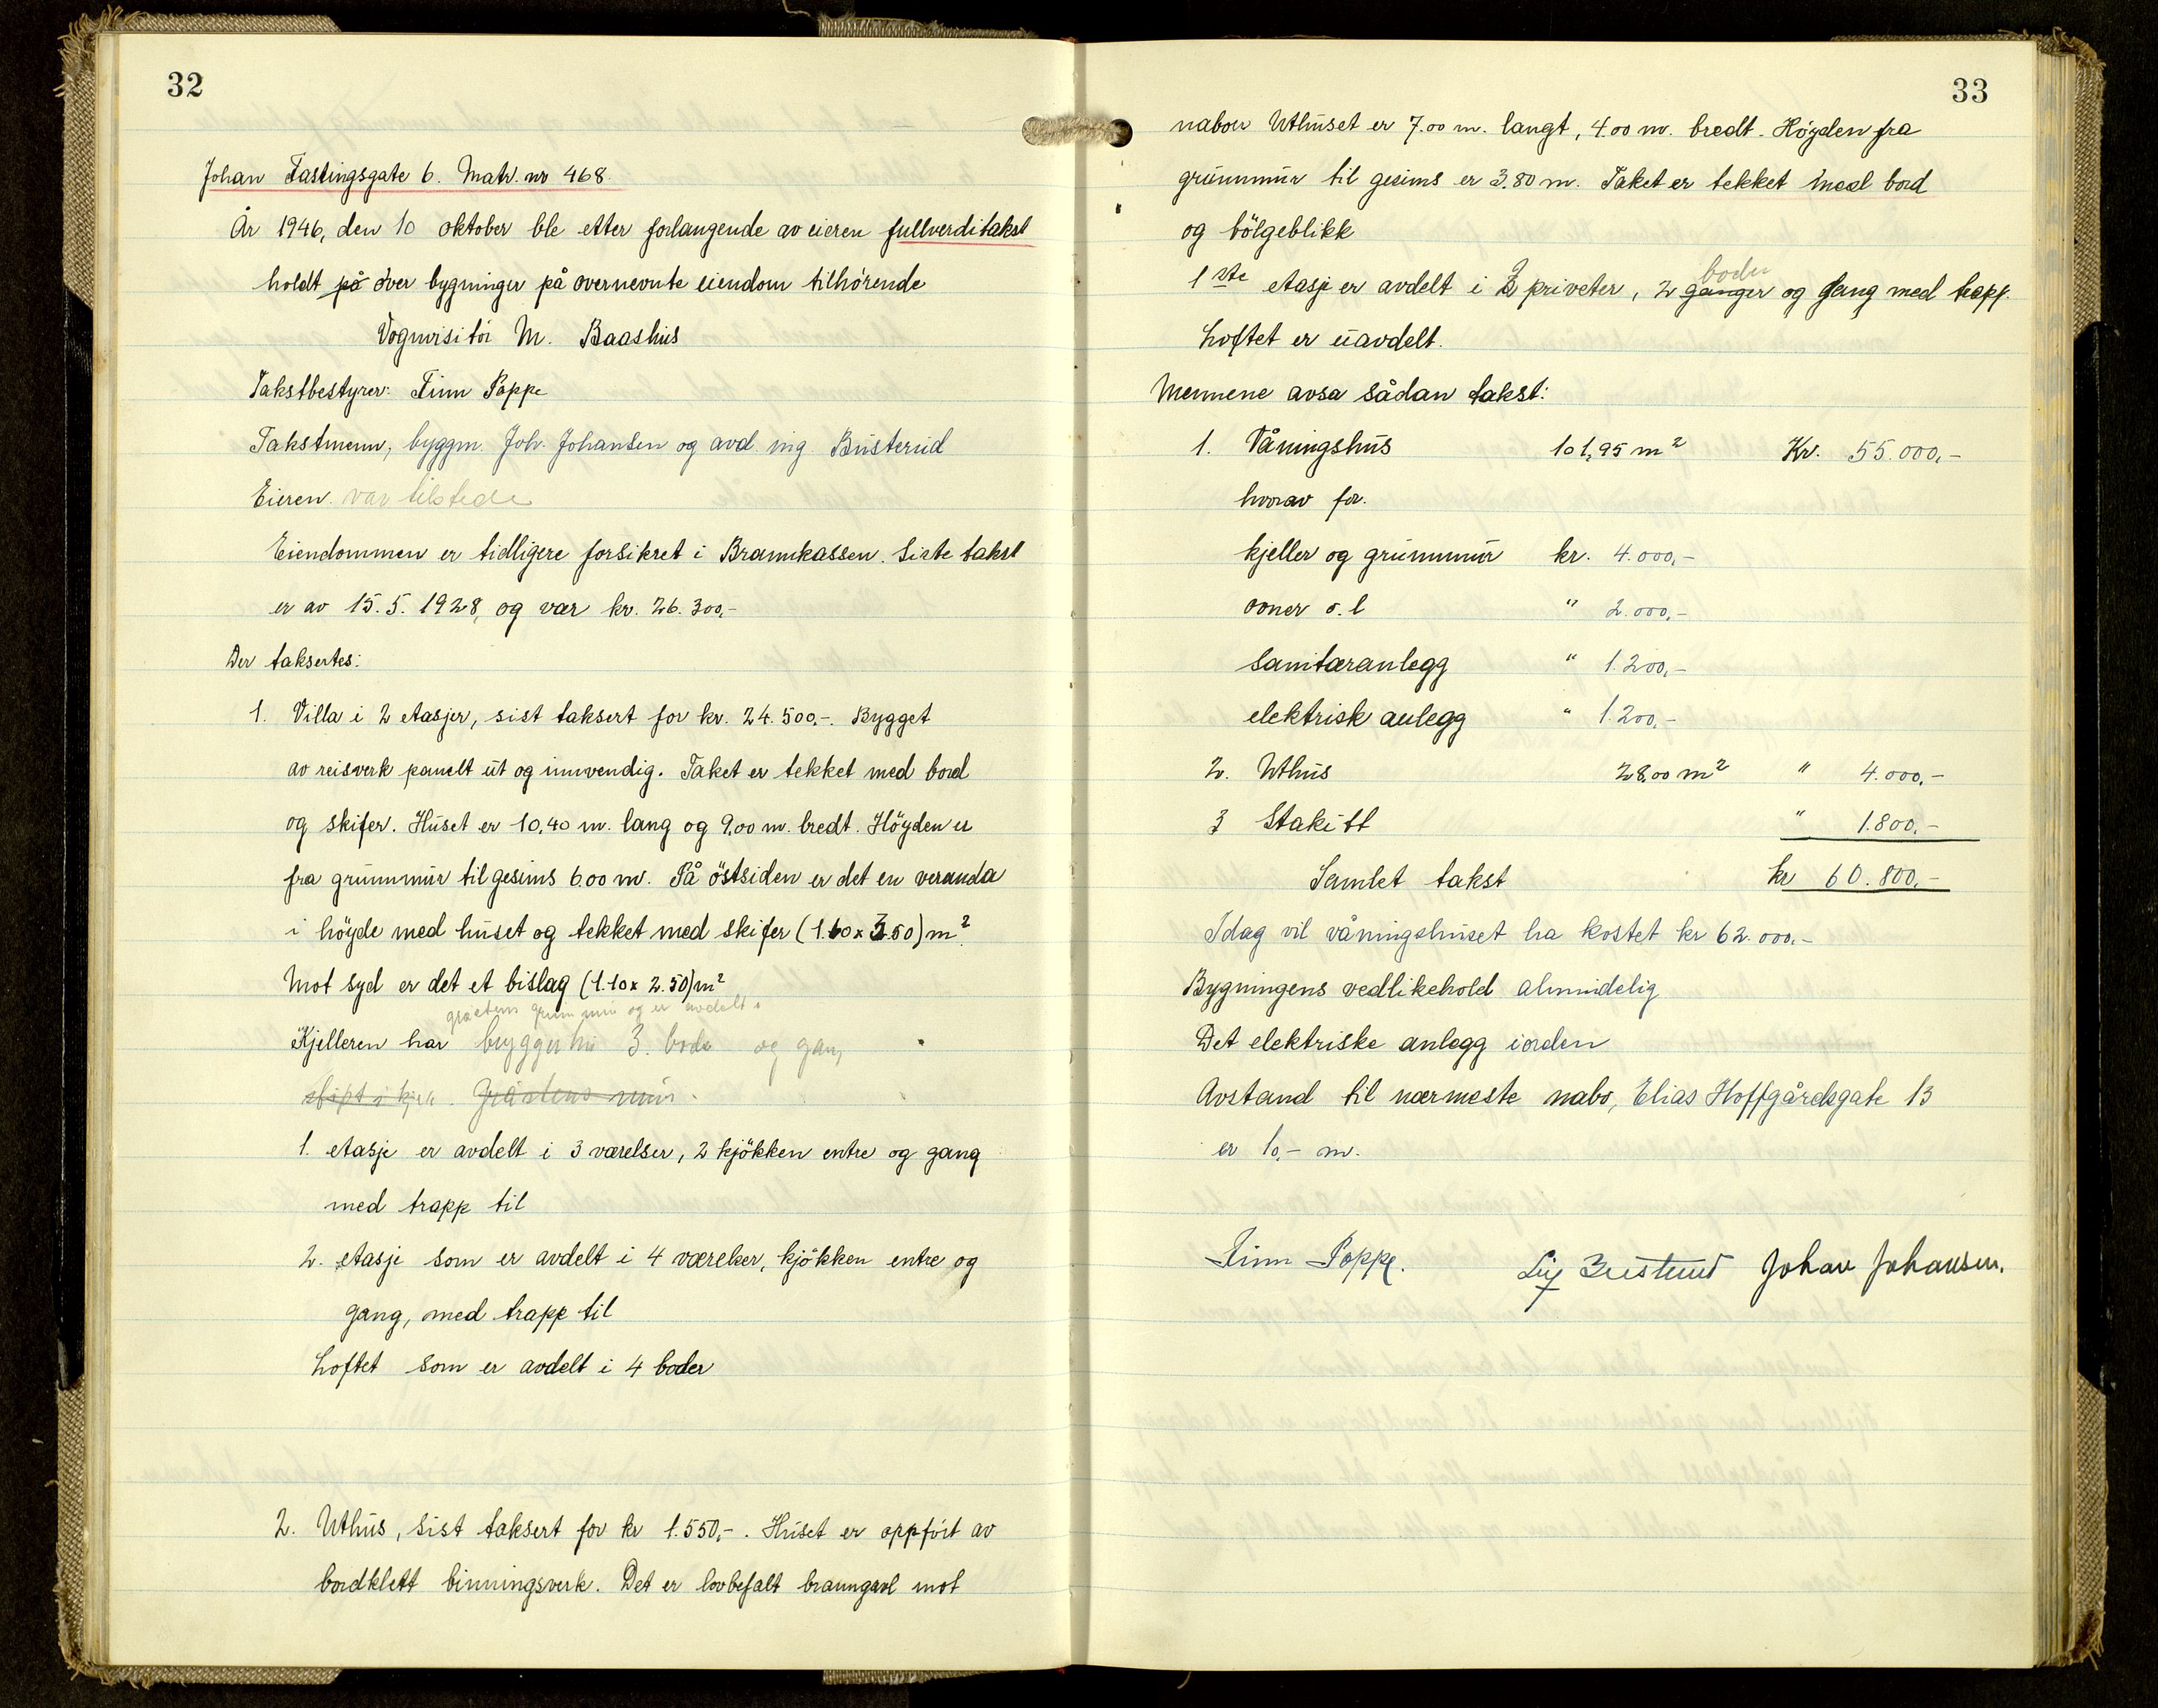 32
Johan Fastingsgate 6. Matr. nr 468
År 1946, den 10 oktober ble etter forlangende av eieren fullverditakst
holdt på over bygninger på overnevnte eiendom tilhörende
Vognvisitör M. Baashus
Takstbestyrer: Finn Poppe
Takstmenn; byggm. Joh. Johansen og avd. ing. Busterud
Eieren var tilstede
Eiendommen er tidligere forsikret i Brannkassen. Siste takst
er av 15.5.1928, og var kr. 26.300,-
Der taksertes:
1. Villa i 2 etasjer, sist taksert for kr. 24.500.-. Bygget
av reisverk panelt ut og innvendig. Taket er tekket med bord
og skifer. Huset er 10,40 m. lang og 9,00 m. bredt. Höyden er
fra grunnmur til gesims 6.00 m. På östsiden er det en veranda
i höyde med huset og tekket med skifer (1.60 x 3.50) m²
Mot syd er det et bislag (1.10 x 2.50) m²
graetens grunnmur og er avdelt i
Kjelleren har bryggerhus 3. boder og gang
stöpt i kjell. Gråstens mur.
1. etasje er avdelt i 3 værelser, 2 kjökken entre og gang
med trapp til
2. etasje som er avdelt i 4 værelser, kjökken entre og
gang, med trapp til
Loftet som er avdelt i 4 boder
2. Uthus, sist taksert for kr 1.550,-. Huset er oppfört av
bordklett binningsverk. Det er lovbefalt branngavl mot
33
nabou Uthuset er 7.00 m. langt, 4.00 m. bredt. Höyden fra
grunnmur til gesims er 3.80 m. Taket er tekket med bord
og bölgeblikk
boder
1ste etasje er avdelt i 2 priveter, 2 ganger og gang med trapp.
Loftet er uavdelt.
Mennene avsa sådan takst:
1. Våningshus 101,95 m² Kr. 55.000,-
hvorav for.
kjeller og grunnmur kr. 4.000,-
ovner o.l " 2.000,-
sanitæranlegg " 1.200,-
elektrisk anlegg " 1.200,-
2. Uthus 28,00 m² " 4.000,-
3 Stakitt " 1.800,-
Samlet takst kr 60.800,-
Idag vil våningshuset ha kostet kr 62.000,-
Bygningens vedlikehold almindelig
Det elektriske anlegg iorden
Avstand til nærmeste nabo, Elias Hoffgårdsgate 13
er 10,- m.
Finn Poppe. Leif Busterud Johan Johansen.